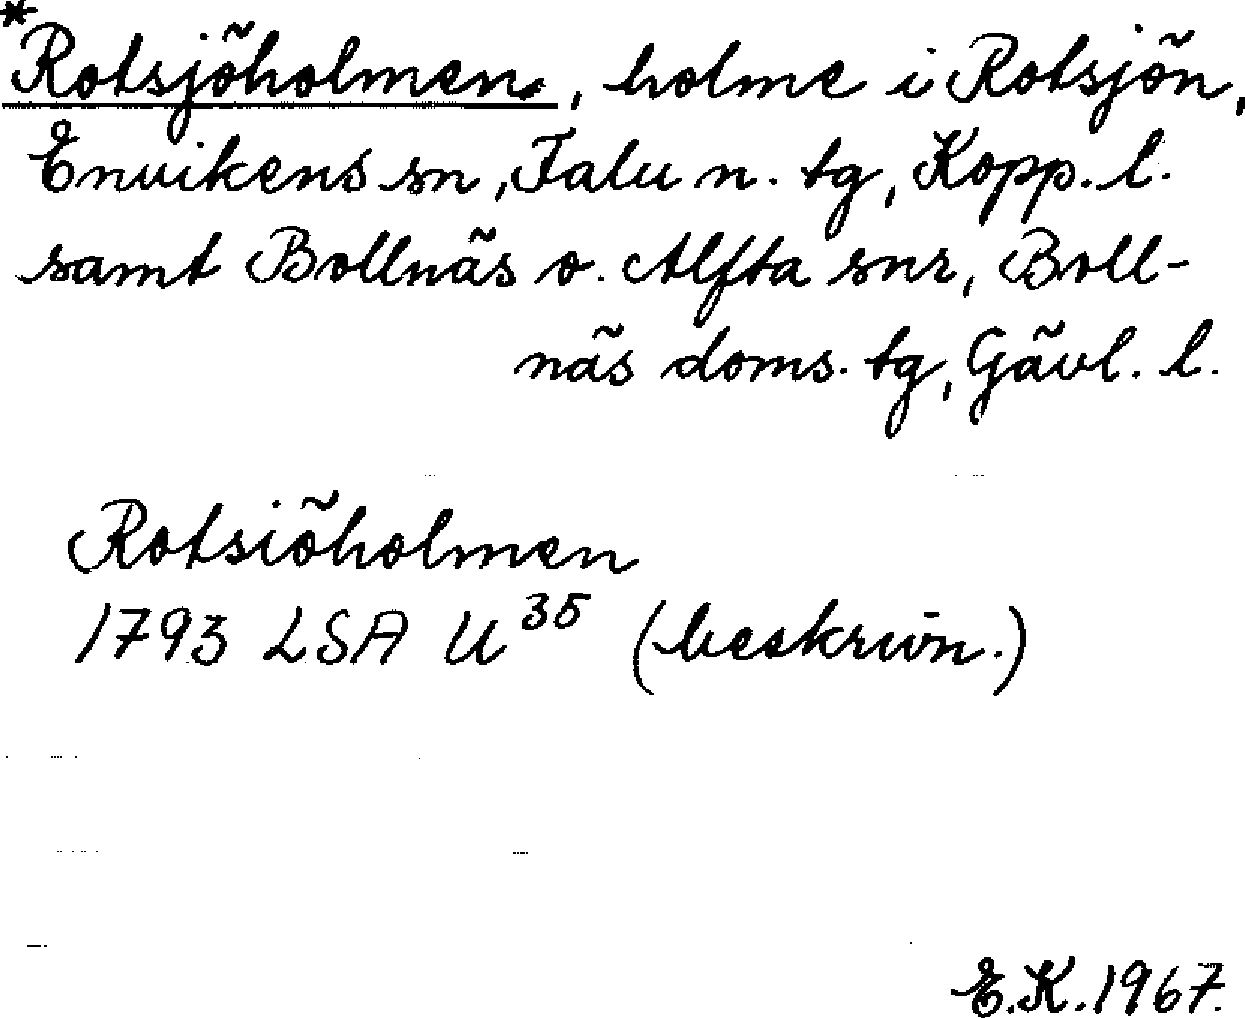 *Rotsjöholmen, holme i Rotsjön,
Envikens sn, Falu n. tg, Kopp. l.
samt Bollnäs o. Alfta snr, Boll-
näs doms. tg, Gävl. l.
Rotsiöholmen
1793 LSA U³⁵ (beskrivn.)
E.K. 1967.